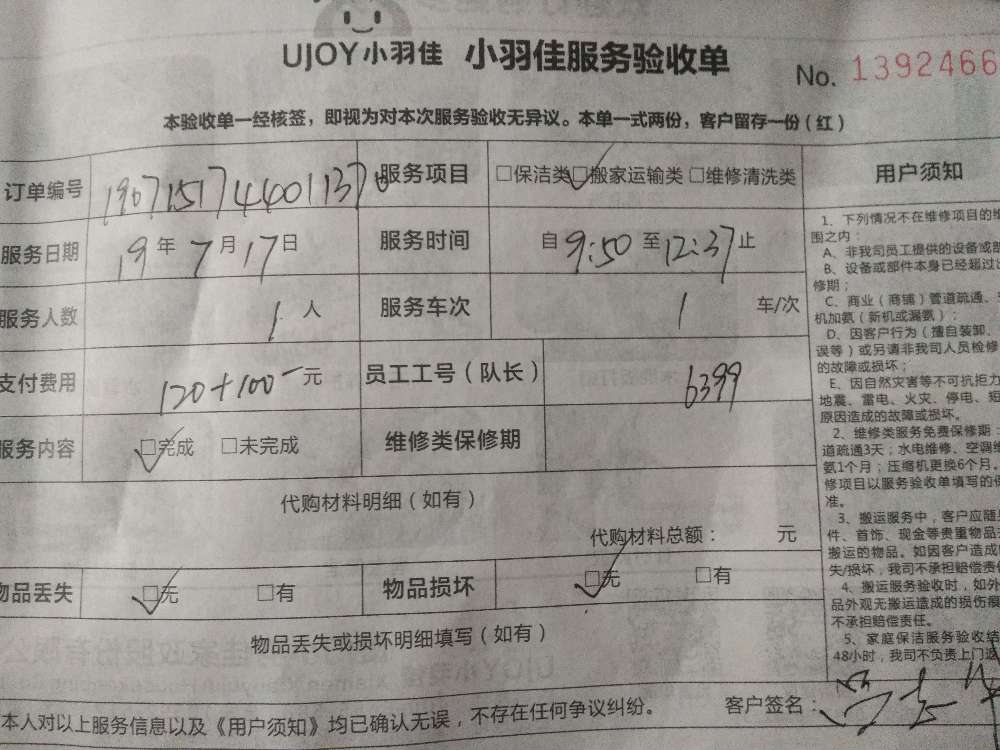 UJOY小羽佳 小羽佳服务验收单 No. 1392466
本验收单一经核签，即视为对本次服务验收无异议。本单一式两份，客户留存一份（红）
订单编号 服务项目 □保洁类 □搬家运输类 □维修清洗类
服务日期 19年7月17日 服务时间 自9:50至12:37止
服务人数 1人 服务车次 1 车/次
支付费用 120+100元 员工工号（队长） 6399
服务内容 □完成 □未完成 维修类保修期
代购材料明细（如有）
代购材料总额： 元
物品丢失 □无 □有 物品损坏 □无 □有
物品丢失或损坏明细填写（如有）
本人对以上服务信息以及《用户须知》均已确认无误，不存在任何争议纠纷。 客户签名：
用户须知
1、下列情况不在维修项目的维
围之内：
A、非我司员工提供的设备或部
B、设备或部件本身已经超过
修期；
C、商业（商铺）管道疏通、
机加氨（新机或漏氨）；
D、因客户行为（擅自装卸、
误等）或另请非我司人员检修
的故障或损坏；
E、因自然灾害等不可抗拒力
地震、雷电、火灾、停电、短
原因造成的故障或损坏。
2、维修类服务免费保修期：
道疏通3天；水电维修、空调
氨1个月；压缩机更换6个月，
修项目以服务验收单填写的
准。
3、搬运服务中，客户应随
件、首饰、现金等贵重物品
搬运的物品。如因客户造成
失/损坏，我司不承担赔偿责
4、搬运服务验收时，如外
品外观无搬运造成的损伤痕
不承担赔偿责任。
5、家庭保洁服务验收结
48小时，我司不负责上门返